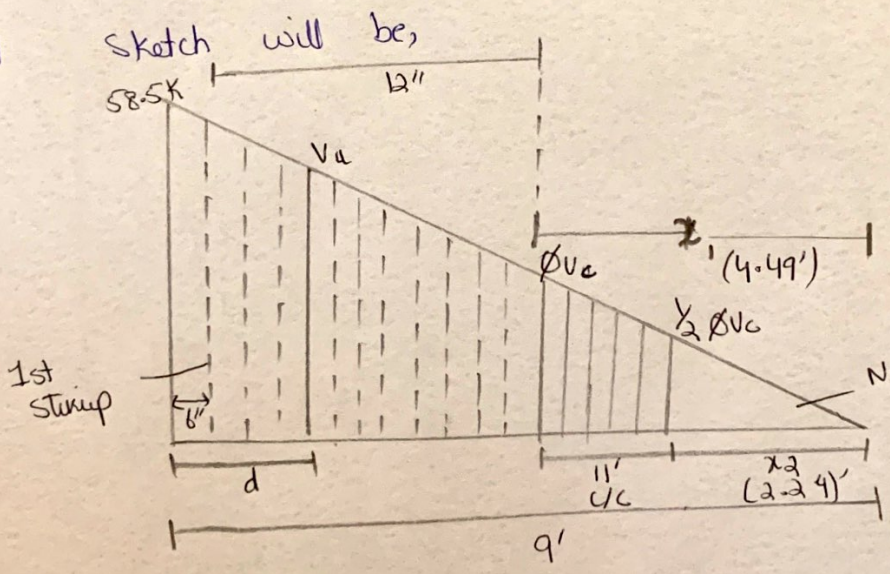 Sketch will be,
12"
58.5K
Vu
x
'(4.49')
ϕVc
1/2 ϕVc
N
1st
stirrup
6"
d
11'
c/c
x2
(2.24)'
9'